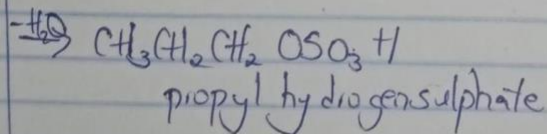 -H₂O→ CH₃CH₂CH₂ OSO₃H
propyl hydrogensulphate